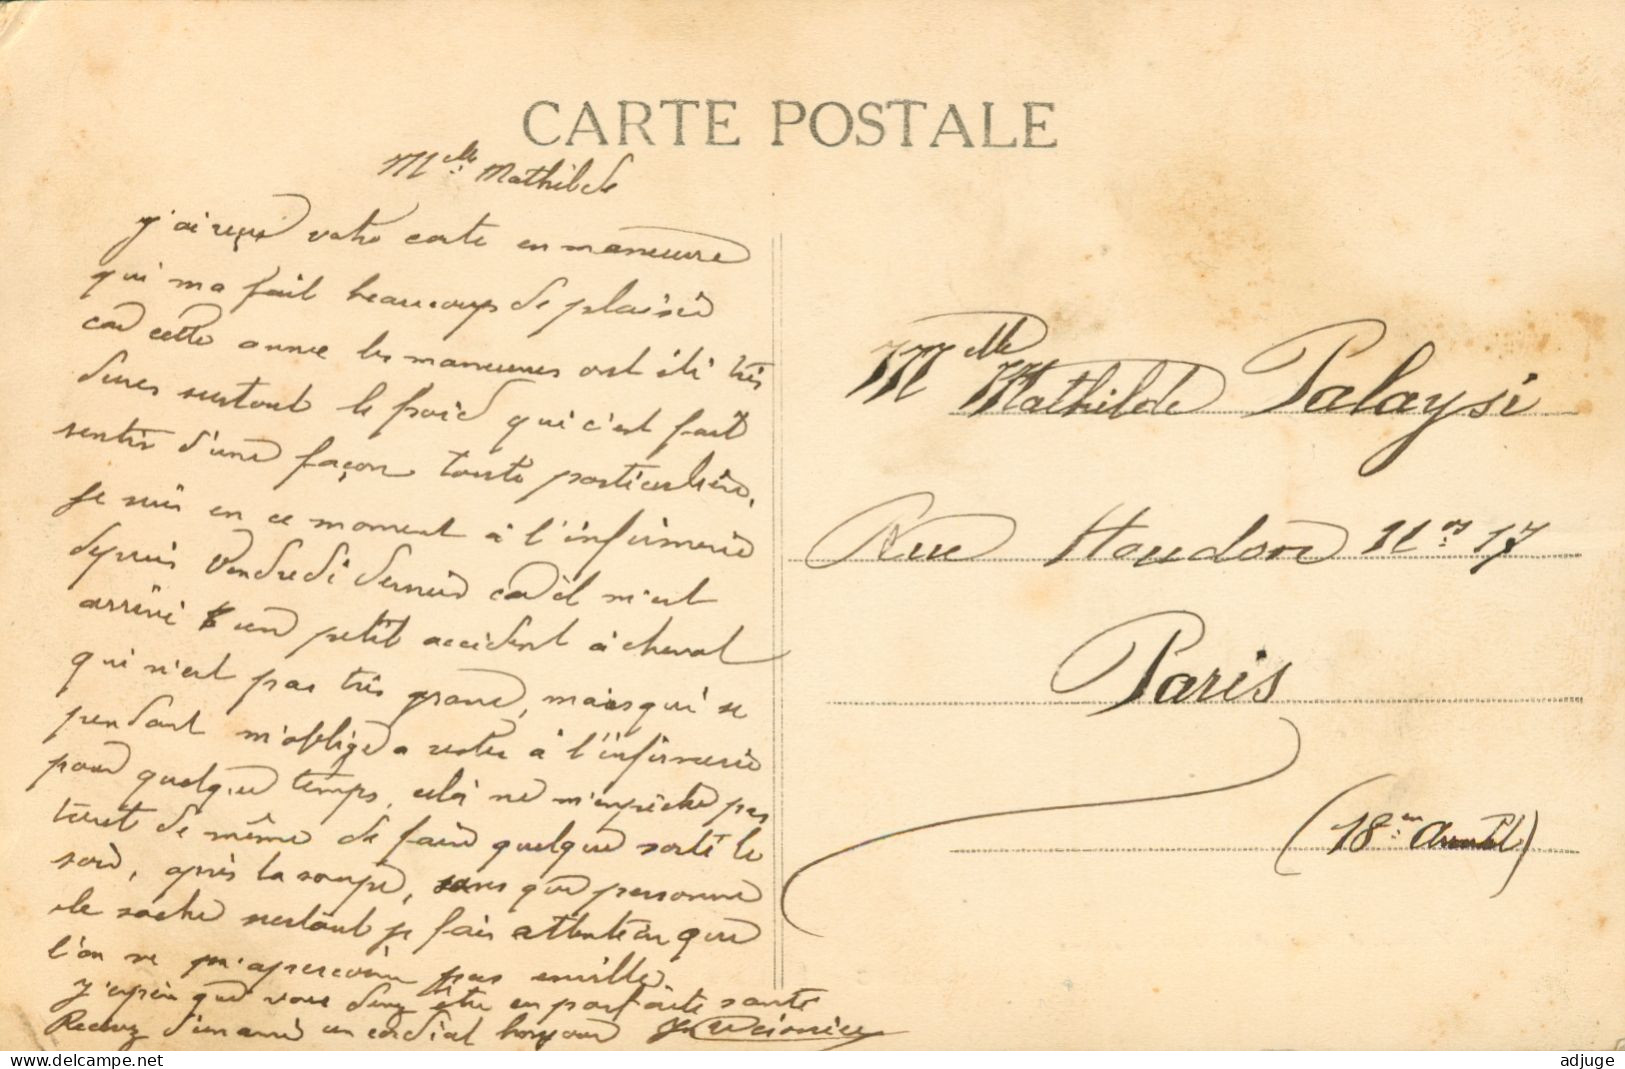 CARTE POSTALE
Melle Mathilde
j'ai reçu votre carte en maneuvre
qui ma fait beaucoup de plaisir
car cette annee les maneuvres ont été très
dures surtout le froid qui c'est fait
sentir d'une façon toute particulière,
Je suis en ce moment à l'infirmerie
depuis Vendredi dernier car il m'est
arrivé un petit accident à cheval
qui n'est pas très grave, mais qui ce
pendant m'oblige a rester à l'infirmerie
pour quelque temps, celà ne m'empêche pas
tout de même de faire quelque sortie le
soir, après la soupe, sans que personne
le sache surtout je fais attention que
l'on ne m'aperçoive pas en ville.
J'espère que vous devez être en parfaite santé
Recevez d'un ami un cordial bonjour
Melle
Mathilde Palaysi
Rue Houdon No 17
Paris
(18em Arrondt)
https://www.delcampe.net
adjuge